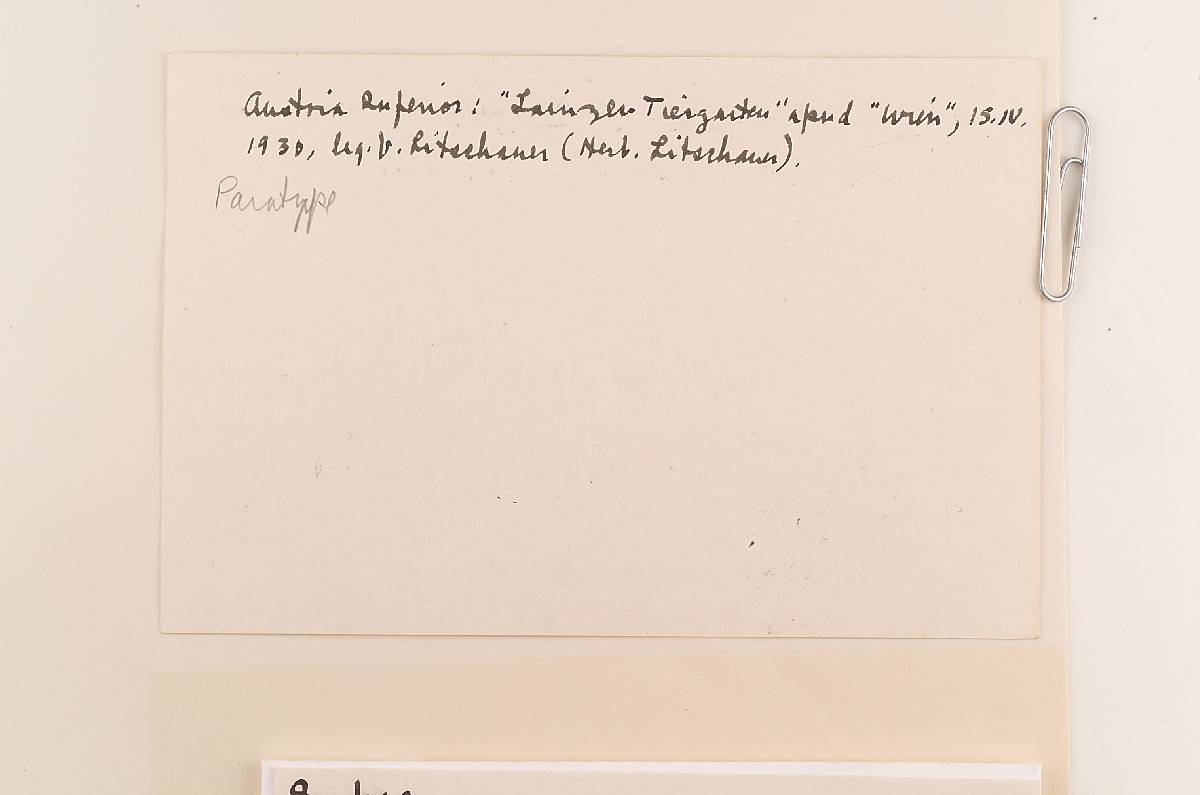 Austria Superior: "Lainzer Tiergarten" apud "Wien", 15.IV.
1930, leg. V. Litschauer (Herb. Litschauer).
Paratype